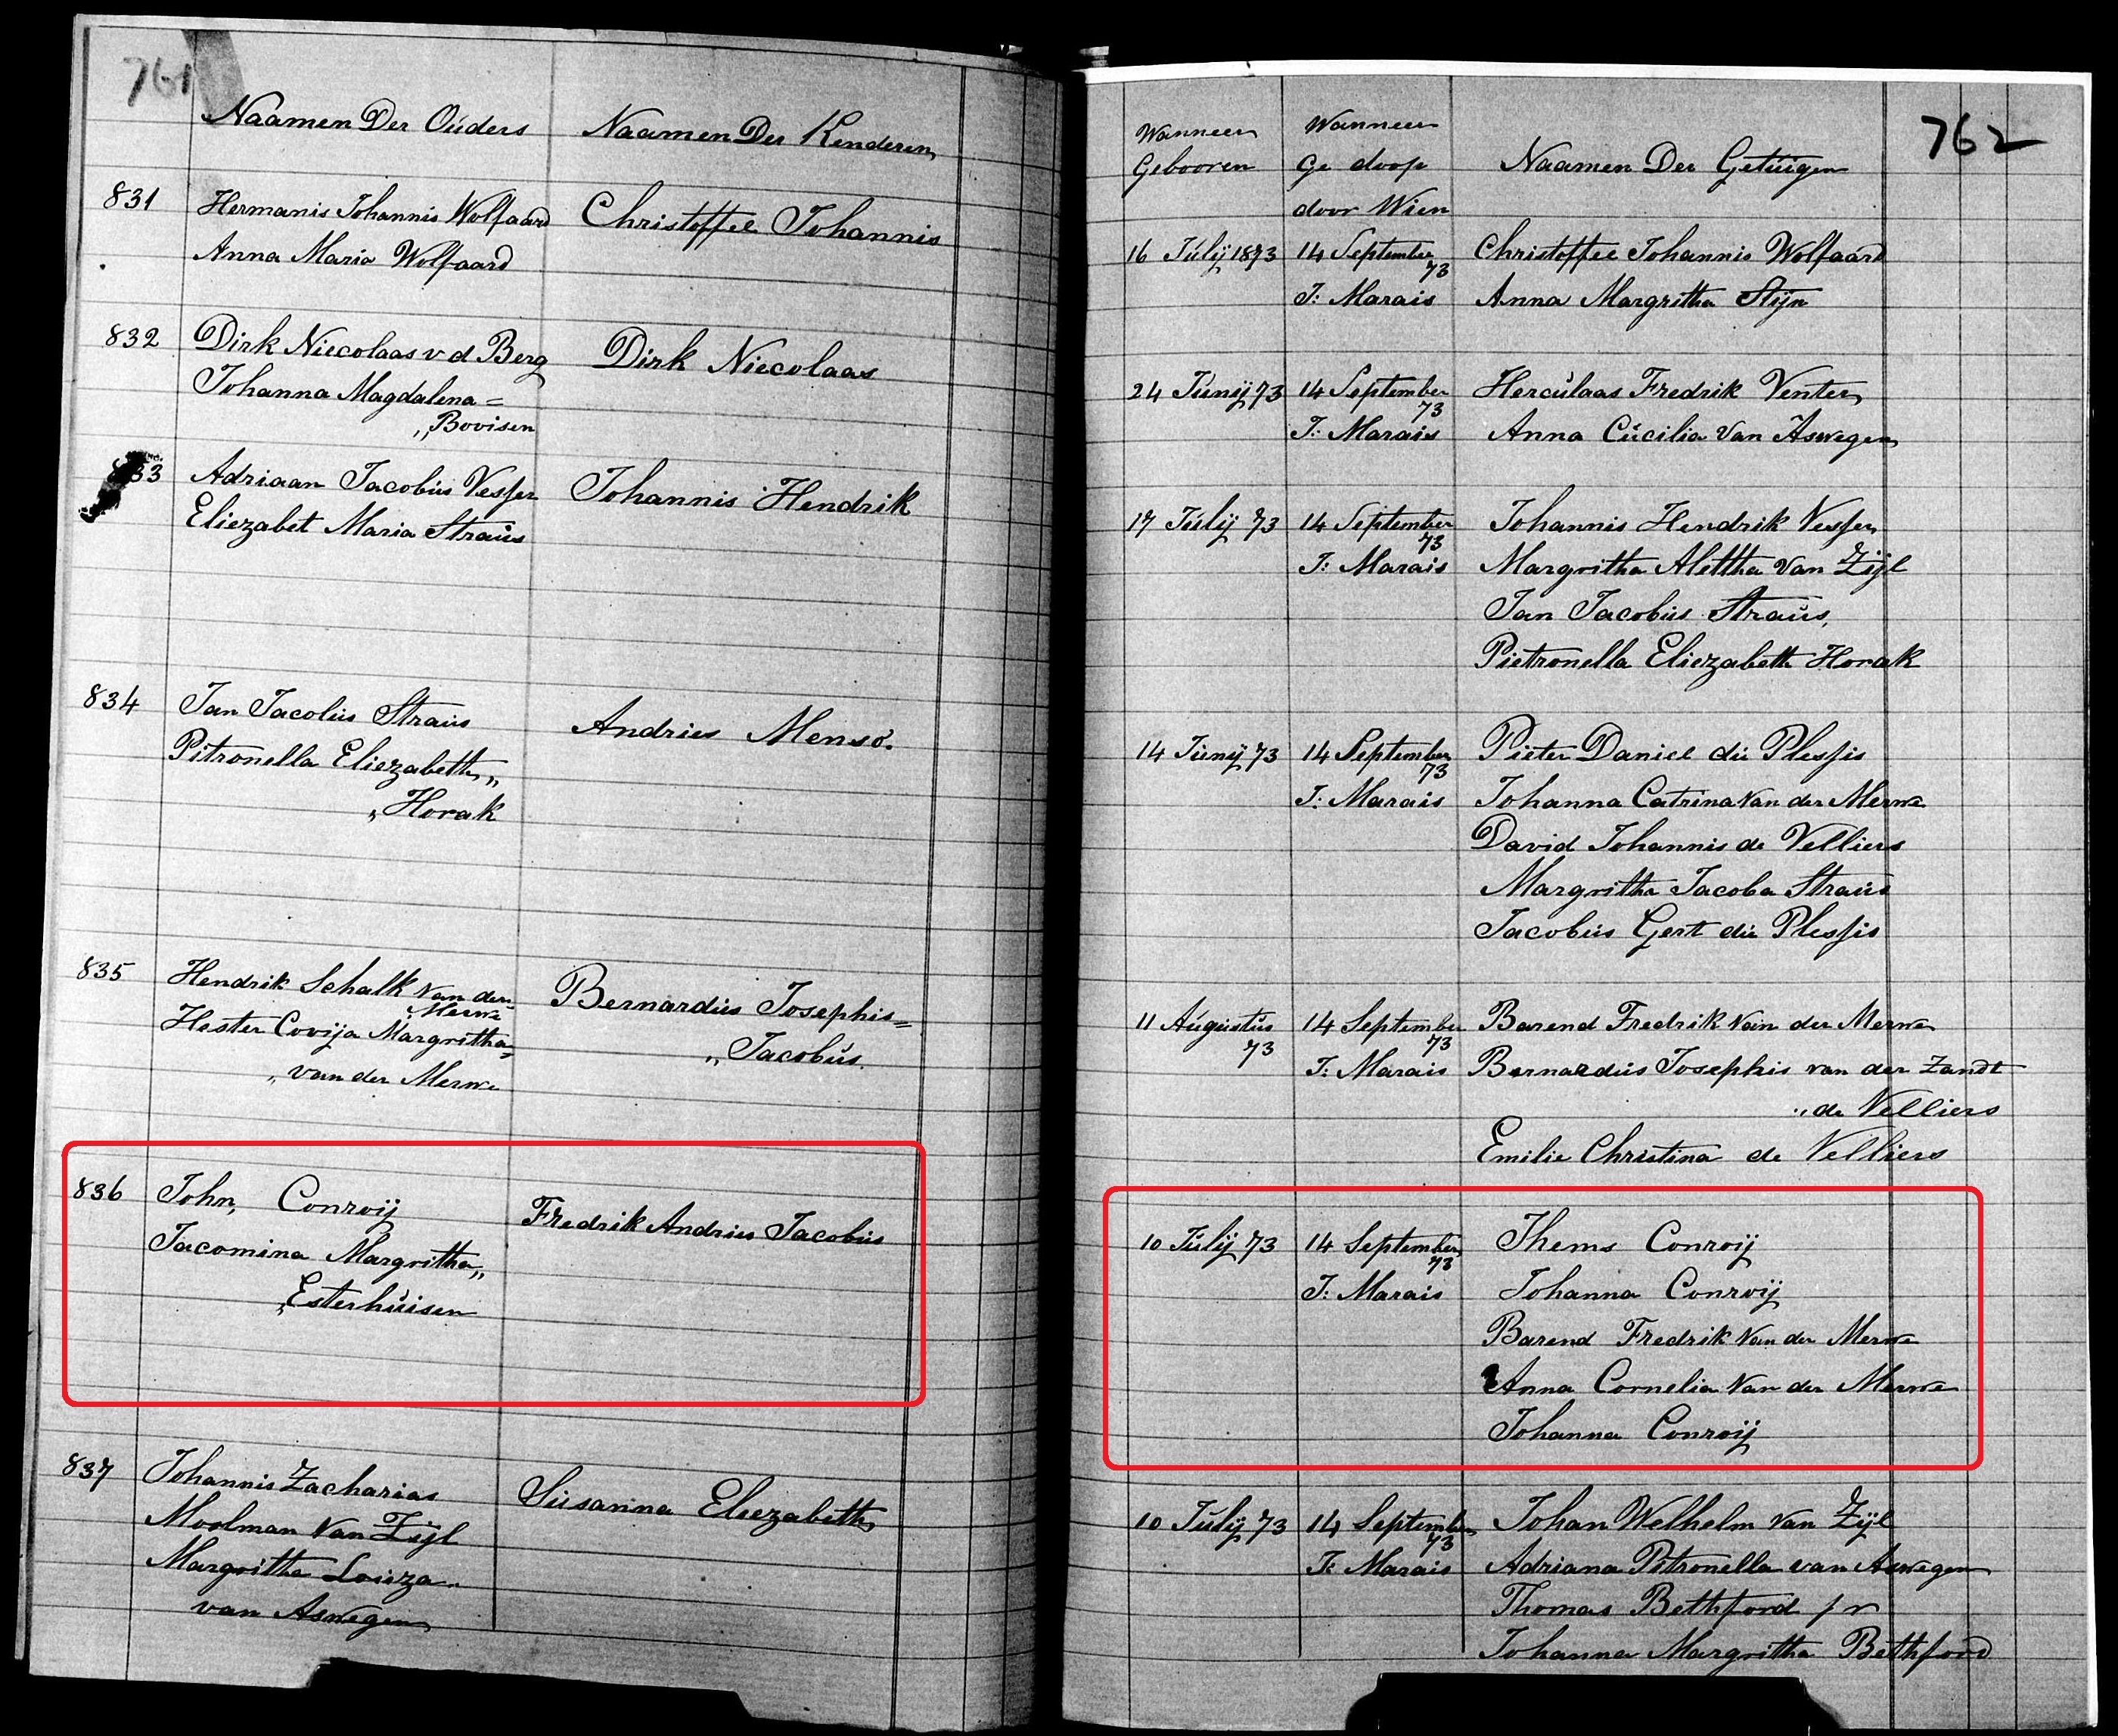 761
Naamen Der Ouders
Naamen Der Kenderen
831
Hermanis Johannis Wolfaard
Anna Maria Wolfaard
Christoffee Johannis
832
Dirk Niecolaas v d Berg
Johanna Magdalena =
„Bovisen
Dirk Niecolaas
833
Adriaan Jacobus Vesser
Eliezabet Maria Straus
Johannis Hendrik
834
Jan Jacobus Straus
Pitronella Eliezabeth„
„Horak
Andries Menso.
835
Hendrik Schalk van der
Merwe
Hester Covija Margritha=
„van der Merwe
Bernardus Josephis=
„Jacobus.
836
John, Conroij
Jacomina Margritha„
„Esterhuisen
Fredrik Andries Jacobus
837
Johannis Zacharias
Moolman Van Zijl
Margritha Louiza
van Aswegen
Susanna Eliezabeth
762
Wanneer
Gebooren
Wanneer
Ge doop
door Wien
Naamen Der Getuigen
16 Julij 1873
14 September
73
J: Marais
Christoffee Johannis Wolfaard
Anna Margritha Stijn
24 Junij 73
14 September
73
J: Marais
Herculaas Fredrik Venter
Anna Cucilia Van Aswegen
17 Julij 73
14 September
73
J: Marais
Johannis Hendrik Vesser
Margritha Alettha Van Zijl
Jan Jacobus Straus,
Pietronella Eliezabeth Horak
14 Junij 73
14 September
73
J: Marais
Pieter Daniel du Plessis
Johanna Catrina Van der Merwe
David Johannis de Velliers
Margritha Jacoba Straus
Jacobus Gert du Plessis
11 Augustus
73
14 September
73
J: Marais
Barend Fredrik Van der Merwe
Bernardus Josephis van der Zandt
„de Velliers
Emilie Christina de Velliers
10 Julij 73
14 September
73
J: Marais
Thems Conroij
Johanna Conroij
Barend Fredrik Van der Merwe
Anna Cornelia Van der Merwe
Johanna Conroij
10 Julij 73
14 September
73
J: Marais
Johan Welhelm Van Zijl
Adriana Pitronella van Aswegen
Thomas Bethford
Johanna Margritha Bethford